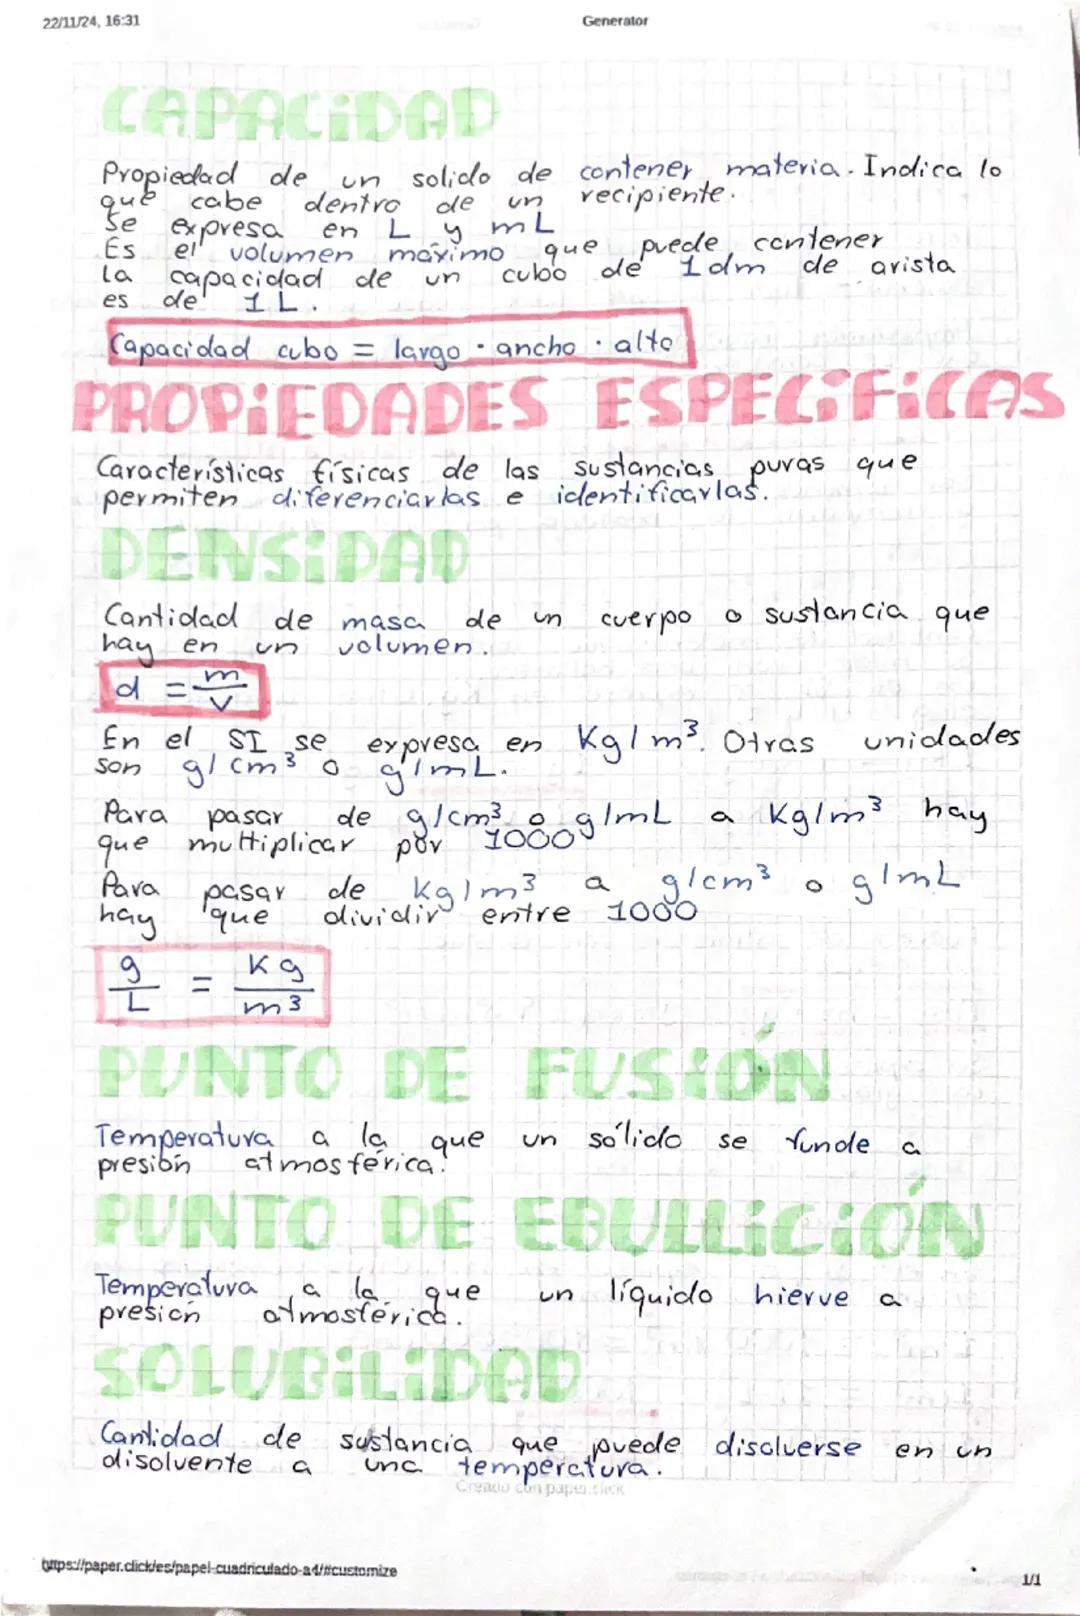 22/11/24, 16:31
Generator
CAPACiDAD
Propiedad de un solido de contener materia. Indica lo
que cabe dentro de un recipiente.
Se expresa en L y mL
Es el volumen máximo que puede contener
La capacidad de un cubo de 1dm de arista
es de 1L.
Capacidad cubo = largo · ancho · alto
PROPiEDADES ESPECíFiCAS
Características físicas de las sustancias puras que
permiten diferenciarlas e identificarlas.
DENSiDAD
Cantidad de masa de un cuerpo o sustancia que
hay en un volumen.
d = m/v
En el SI se expresa en Kg/m³. Otras unidades
son g/cm³ o g/mL.
Para pasar de g/cm³ o g/mL a Kg/m³ hay
que multiplicar por 1000
Para pasar de kg/m³ a g/cm³ o g/mL
hay que dividir entre 1000
g/L = Kg/m³
PUNTO DE FUSiÓN
Temperatura a la que un sólido se funde a
presión atmosférica.
PUNTO DE EBULLiCiÓN
Temperatura a la que un líquido hierve a
presión atmosférica.
SOLUBiLiDAD
Cantidad de sustancia que puede disolverse en un
disolvente a una temperatura.
Creado con paper.click
https://paper.click/es/papel-cuadriculado-a4/#customize
1/1